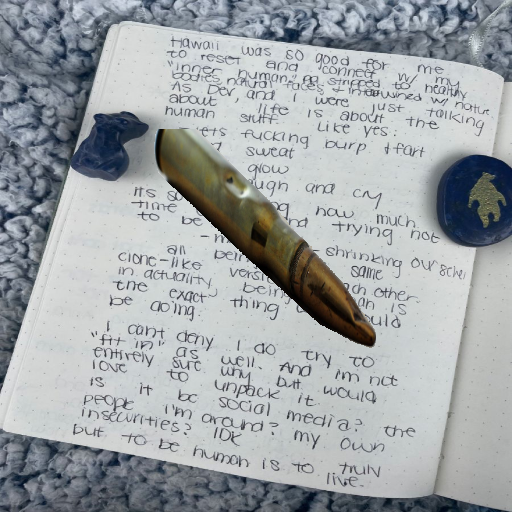 Hawaii was so good for me
to reset and connect w/ my
"inner human" na stripped to healthy
bodies, natural faces + intertwined w/ nature
As Dev, and I were just talking
about, life is about the
human stuff. Like yes:
lets fucking burp + fart
sweat
glow
and cry
its how much
time nd trying not
to be shrinking ourselves
all being same
clone-like versi ch other.
in actuality, being an is
the exact thing ould
be doing.
I cant deny I do try to
"fit in" as well. And im not
entirely sure why but would
love to unpack it.
is it bc social media? the
people I'm around? my own
insecurities? IDK
but to be human is to truly
live.